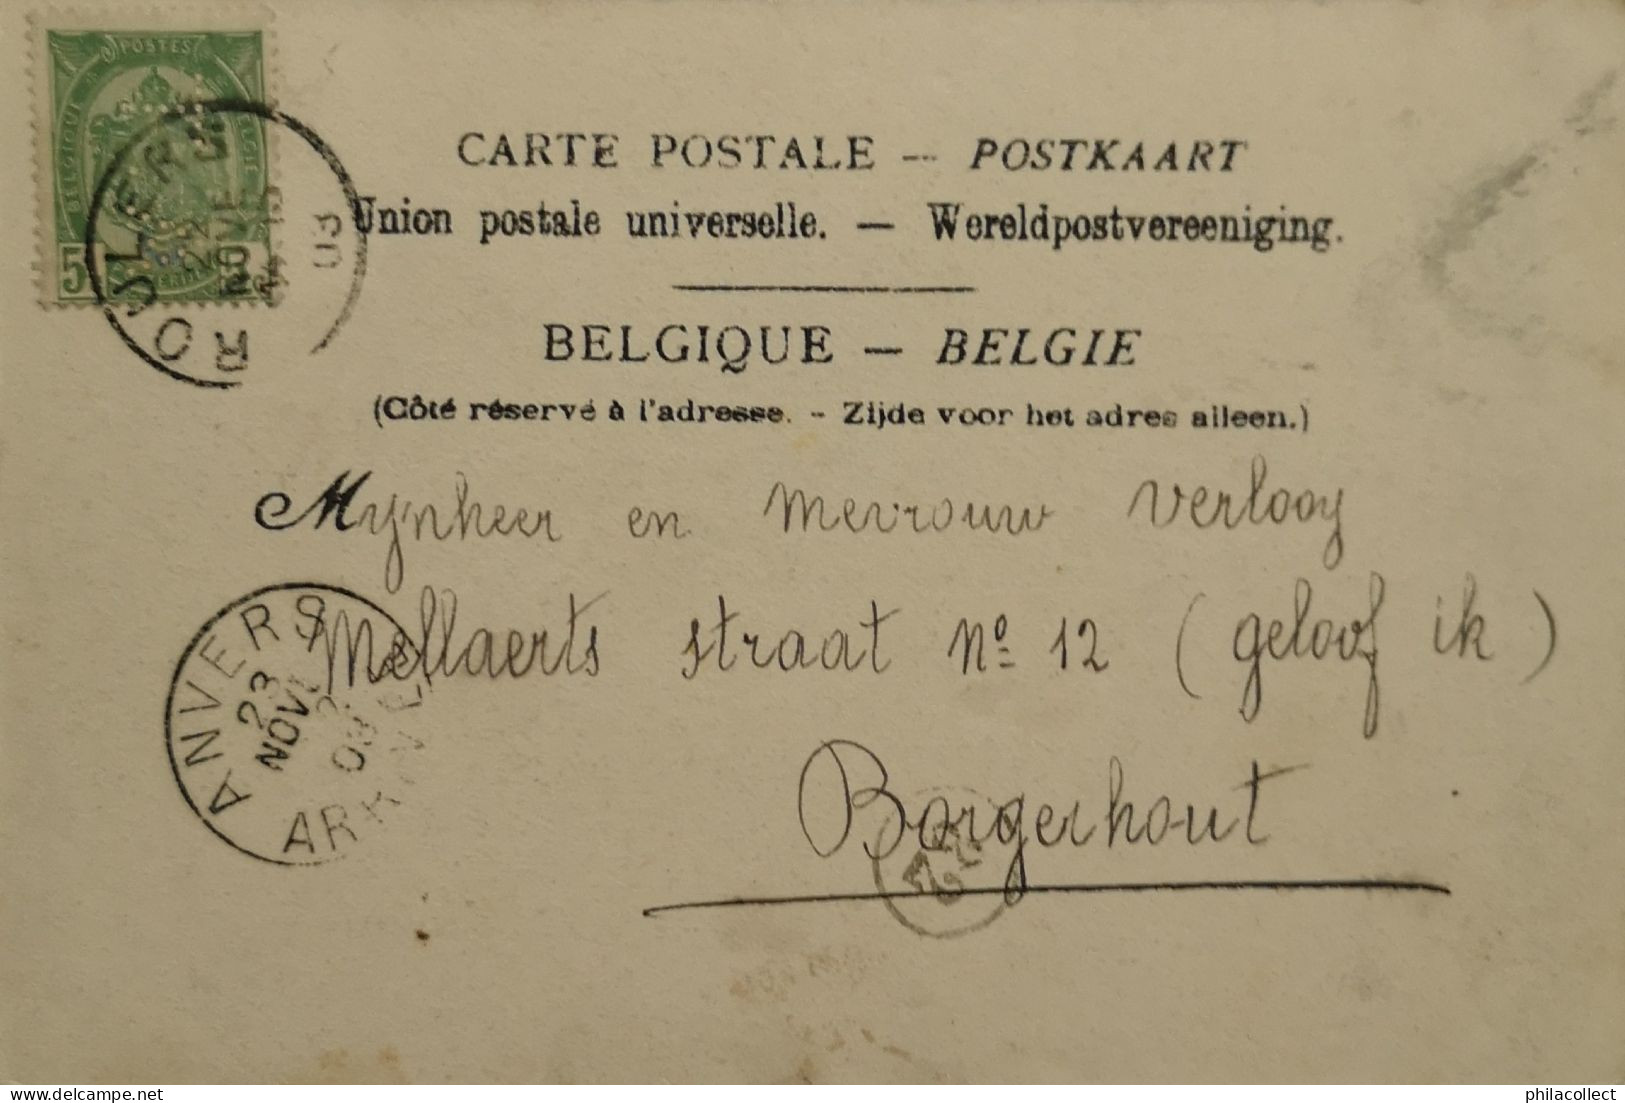 POSTES
BELGIQUE
BELGIE
5
ROULERS
22
NOVE
03
CARTE POSTALE — POSTKAART
Union postale universelle. — Wereldpostvereeniging.
BELGIQUE — BELGIE
(Côté réservé à l'adresse. - Zijde voor het adres alleen.)
Mynheer en mevrouw Verlooy
Mellaerts straat No 12 (geloof ik)
Borgerhout
ANVERS
23
NOVE
03
22
philacollect